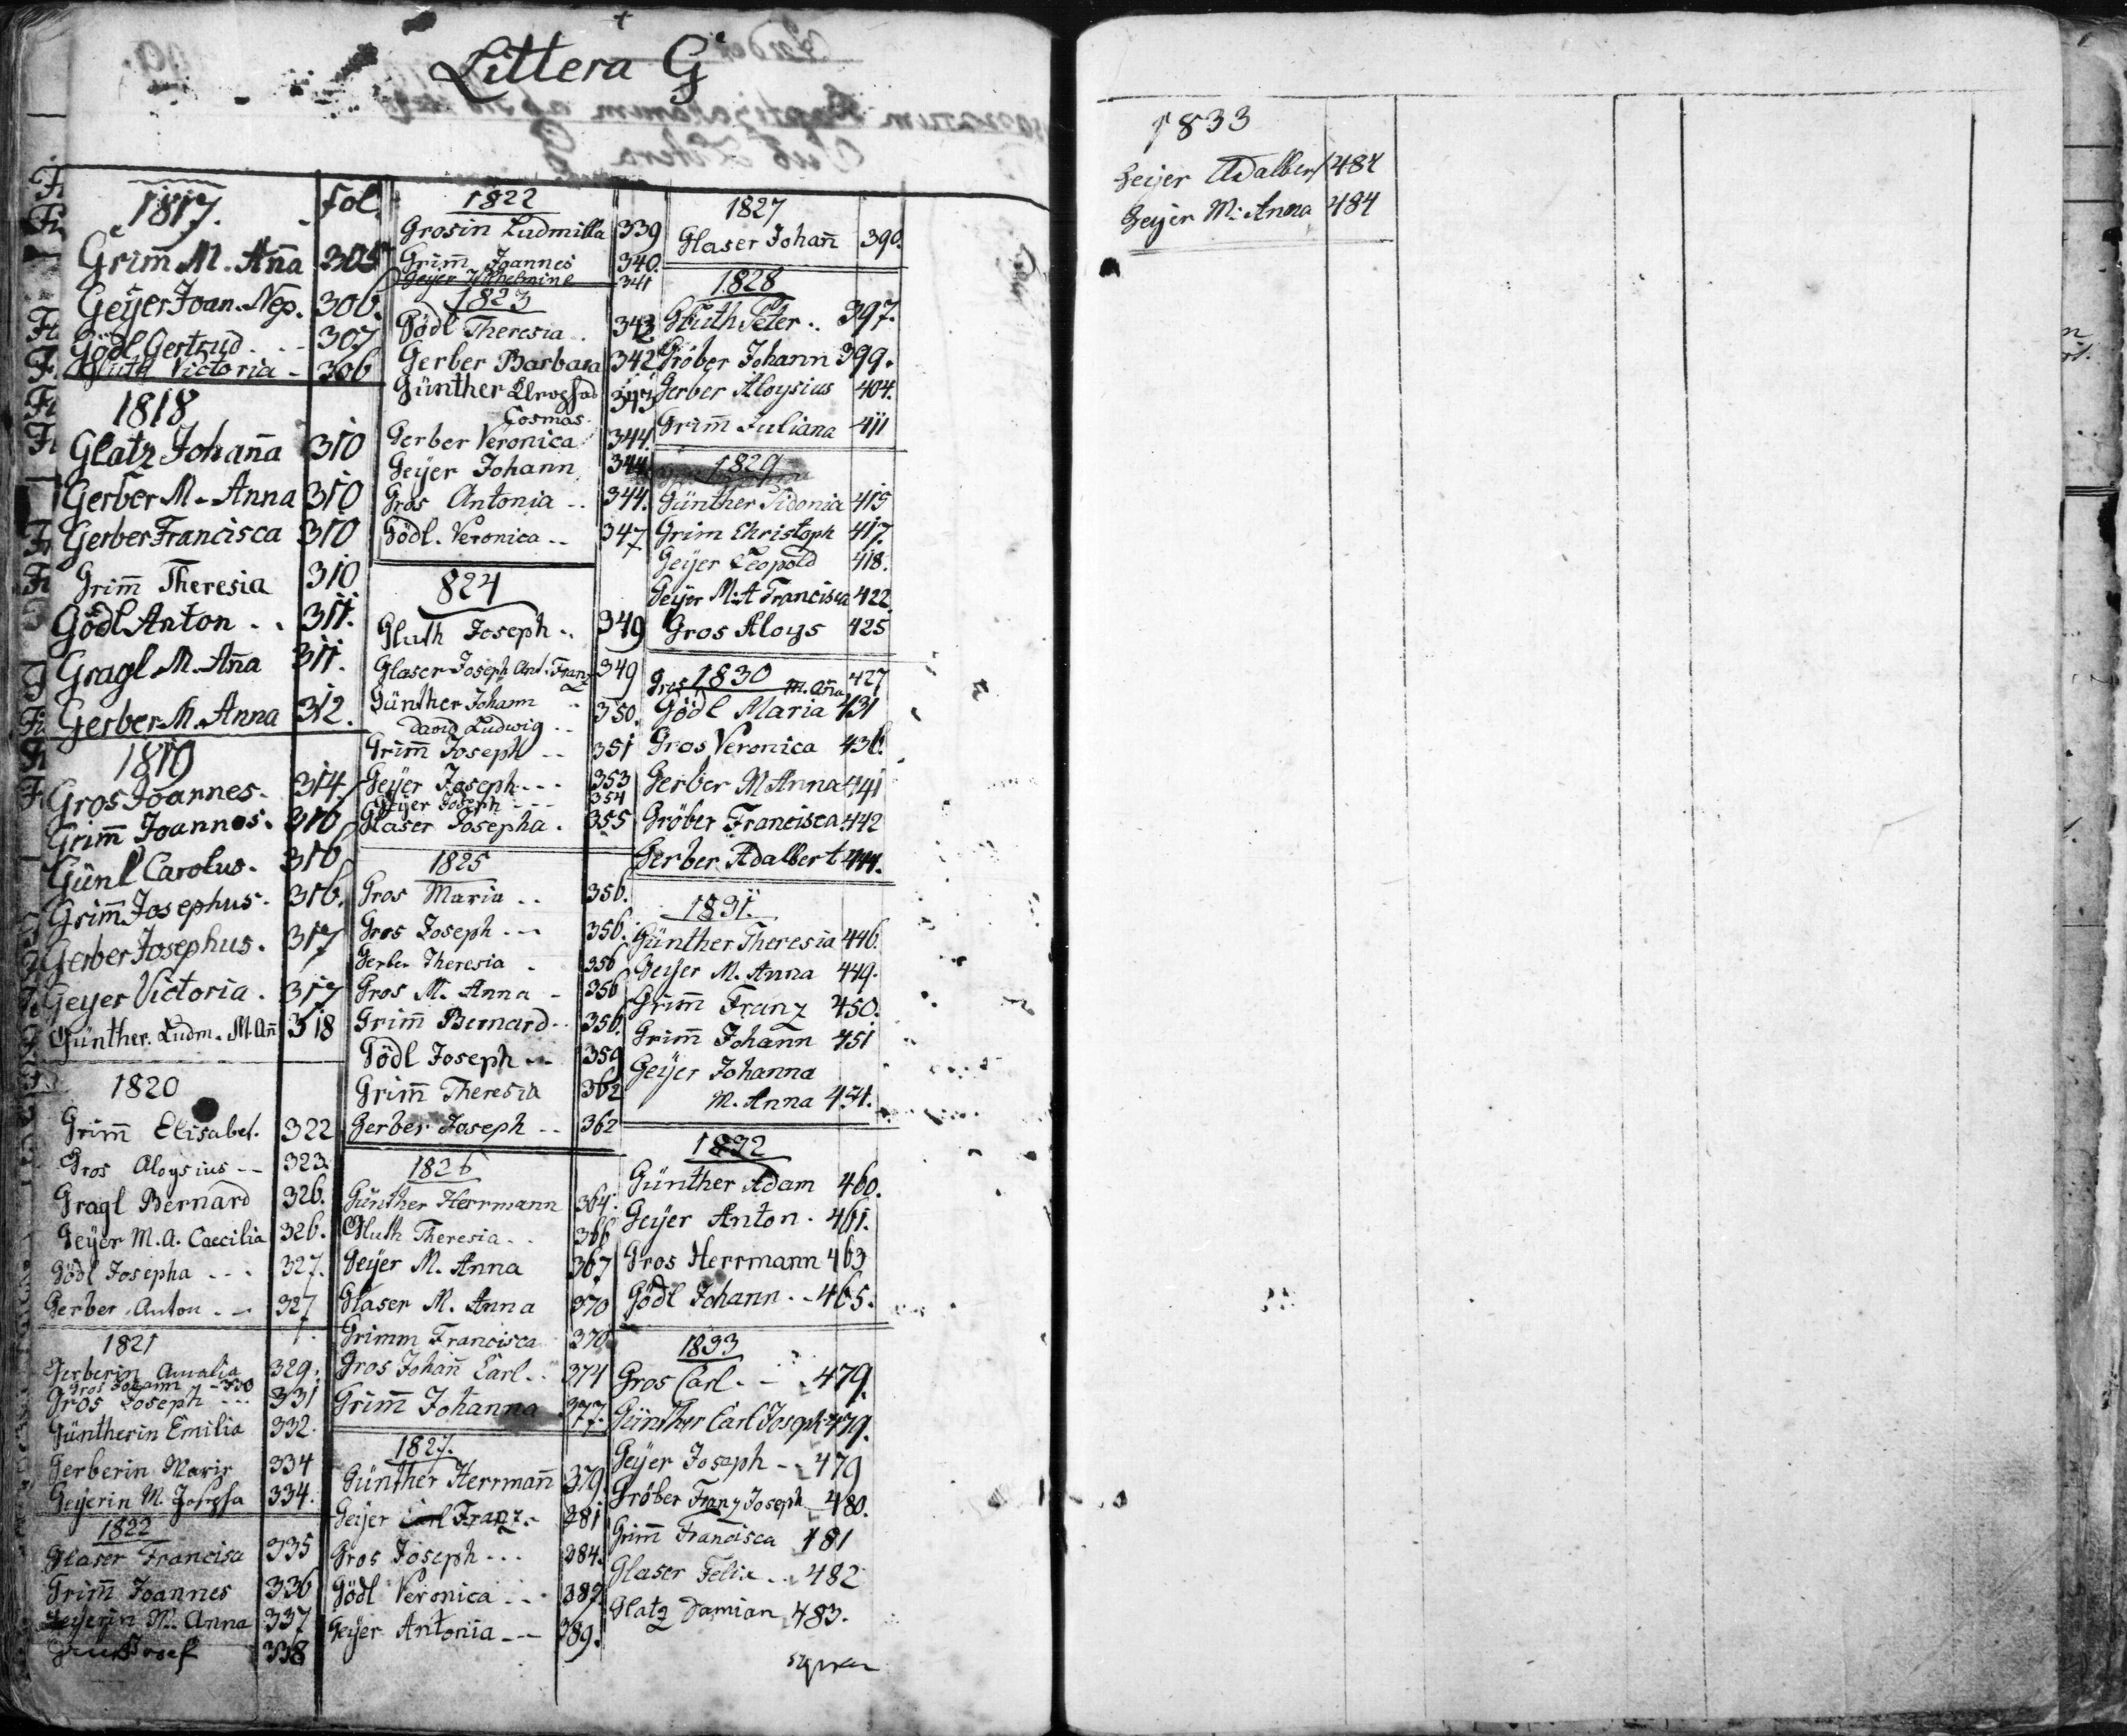 Littera G
1817. Fol.
Grim̄ M. An̄a 305
Geÿer Joan. Nep. 306.
Gödl Gertrud - 307
Gluth Victoria - 306
1818
Glatz Johan̄a 310
Gerber M. Anna 310
Gerber Francisca 310
Grim̄ Theresia 310
Gödl Anton . . 311.
Gragl M. An̄a 311.
Gerber M. Anna 312.
1819
Gros Joannes. 314.
Grim̄ Joannes. 316
Günl Carolus. 316
Grim̄ Josephus. 316.
Gerber Josephus. 317
Geyer Victoria. 317
Günther Ludm. M. An̄ 318
1820
Grim̄ Elisabet. 322
Gros Aloysius -- 323.
Gragl Bernard 326.
Geÿer M. A. Caecilia 326.
Gödl Josepha - - - 327.
Gerber Anton . - 327
1821
Gerberin Amalia 329.
Gros Johann - 330
Gros Joseph - - - 331
Güntherin Emilia 332.
Gerberin Marie 334
Geÿerin M. Josepha 334.
1822
Glaser Francisca 335
Grim̄ Joannes 336
Geyerin M. Anna 337
Josef 338
1822
Grosin Ludmilla 339
Grim̄ Joannes 340.
Geyer Wilhelmine 341
1823
Gödl Theresia . . 342
Gerber Barbara 342
Günther
Cosmas. 343
Gerber Veronica 344.
Geÿer Johann 344
Gros Antonia . . 344.
Gödl. Veronica . . 347
824
Gluth Joseph . . 349
Glaser Joseph Ant. Franz 349
Günther Johann
David Ludwig . . 350.
Grim̄ Joseph - - 351
Geÿer Joseph - - - 353
Geÿer Joseph - - - 354
Glaser Josepha . 355
1825
Gros Maria . . 356.
Gros Joseph - - - 356.
Gerber Theresia . 356
Gros M. Anna - 356
Grim̄ Bernard - . 356.
Gödl Joseph - - 359
Grim̄ Theresia 362
Gerber Joseph - - 362
1826
Günther Herrmann 364.
Gluth Theresia . . 366
Geÿer M. Anna 367
Glaser M. Anna 370
Grimm Francisca 370
Gros Johan̄ Carl . . 374
Grim̄ Johanna 377.
1827.
Günther Herrman̄ 379.
Geÿer Carl Franz - 381
Gros Joseph - - - 384.
Gödl Veronica . . . 387.
Geÿer Antonia - - - 389.
1827
Glaser Johan̄ 390.
1828
Gluth Peter . . 397.
Gröber Johann 399.
Gerber Aloysius 404.
Grim̄ Juliana 411
1829
Günther Sidonia 415
Grim Christoph 417.
Geÿer Leopold 418.
Geÿer M. A Francisca 422.
Gros Aloys 425
1830
Gros M. An̄a 427
Gödl Maria 431
Gros Veronica 436.
Gerber M Anna 441
Gröber Francisca 442
Gerber Adalbert 444.
1831.
Günther Theresia 446.
Geÿer M. Anna 449.
Grim̄ Franz 450.
Grim̄ Johann 451
Geÿer Johanna
M. Anna 454.
1832
Günther Adam 460.
Geÿer Anton. 461.
Gros Herrmann 463
Gödl Johann . - 465.
1833
Gros Carl . - . 479.
Günther Carl Joseph 479.
Geÿer Joseph - - 479
Gröber Franz Joseph 480.
Grim̄ Francisca 481
Glaser Felix . . 482
Glatz Damian 483.
1833
Geijer Adalbert 484
Geyer M. Anna 484